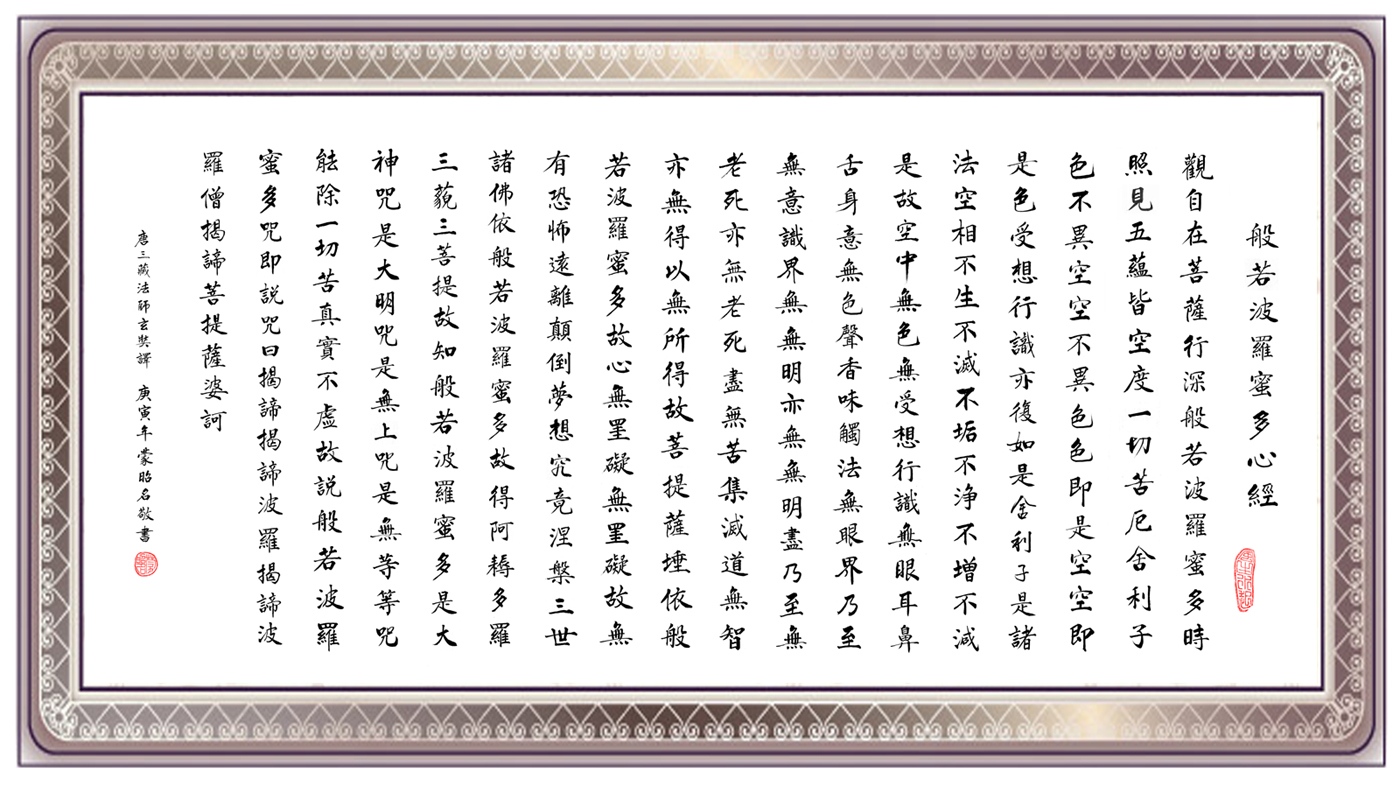 般若波羅蜜多心經
觀自在菩薩行深般若波羅蜜多時
照見五蘊皆空度一切苦厄舍利子
色不異空空不異色色即是空空即
是色受想行識亦復如是舍利子是諸
法空相不生不滅不垢不浄不增不減
是故空中無色無受想行識無眼耳鼻
舌身意無色聲香味觸法無眼界乃至
無意識界無無明亦無無明盡乃至無
老死亦無老死盡無苦集滅道無智
亦無得以無所得故菩提薩埵依般
若波羅蜜多故心無罣礙無罣礙故無
有恐怖遠離顛倒夢想究竟涅槃三世
諸佛依般若波羅蜜多故得阿耨多羅
三藐三菩提故知般若波羅蜜多是大
神咒是大明咒是無上咒是無等等咒
能除一切苦真實不虛故説般若波羅
蜜多咒即説咒曰揭諦揭諦波羅揭諦波
羅僧揭諦菩提薩婆訶
唐三藏法師玄奘譯 庚寅年蒙昭名敬書